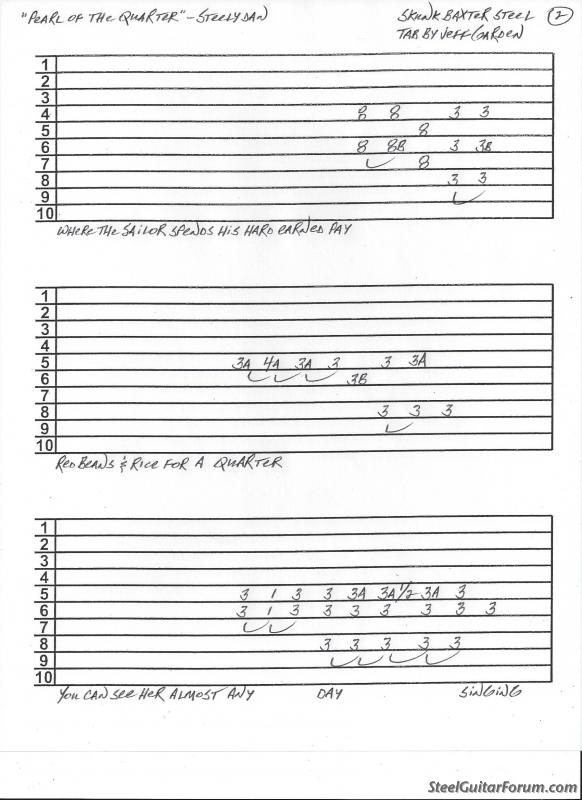 "PEARL OF THE QUARTER" - STEELY DAN
SKUNK BAXTER STEEL 2
TAB BY JEFF GARDEN
1
2
3
4 8 8 3 3
5 8
6 8 8B 3 3B
7 8
8 3 3
9
10
WHERE THE SAILOR SPENDS HIS HARD EARNED PAY
1
2
3
4
5 3A 4A 3A 3 3 3A
6 3B
7
8 3 3 3
9
10
RED BEANS & RICE FOR A QUARTER
1
2
3
4
5 3 1 3 3 3A 3A 1/2 3A 3
6 3 1 3 3 3 3 3 3 3
7
8 3 3 3 3 3
9
10
YOU CAN SEE HER ALMOST ANY DAY SINGING
SteelGuitarForum.com